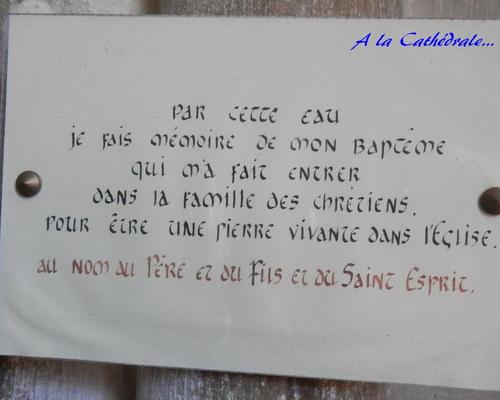 A la Cathédrale...
par cette eau
je fais mémoire de mon baptême
qui m'a fait entrer
dans la famille des chrétiens.
pour être une pierre vivante dans l'Église.
au nom du Père et du Fils et du Saint Esprit.